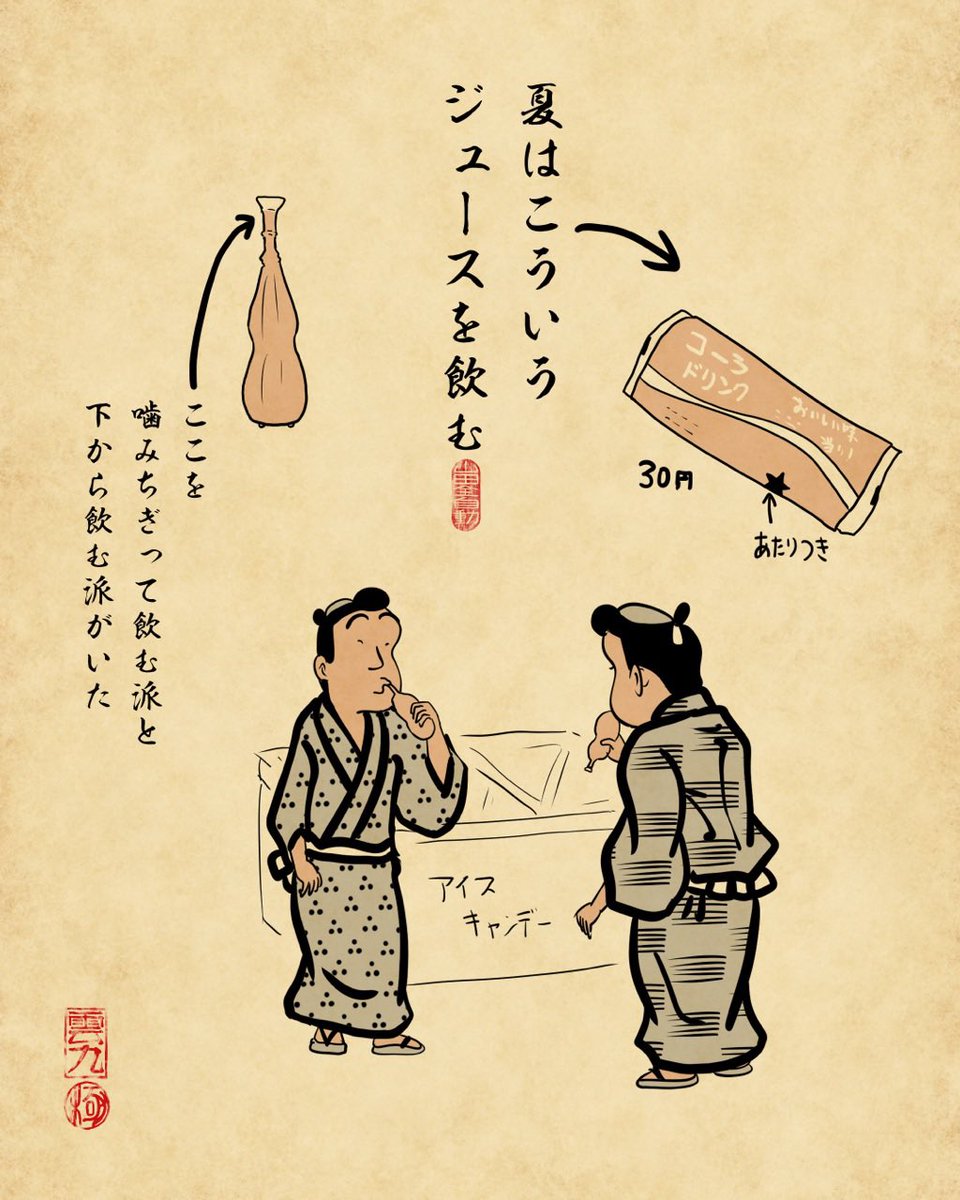 夏はこういう
ジュースを飲む
コーラ
ドリンク
おいしい味
当り!
30円
あたりつき
ここを
噛みちぎって飲む派と
下から飲む派がいた
アイス
キャンデー